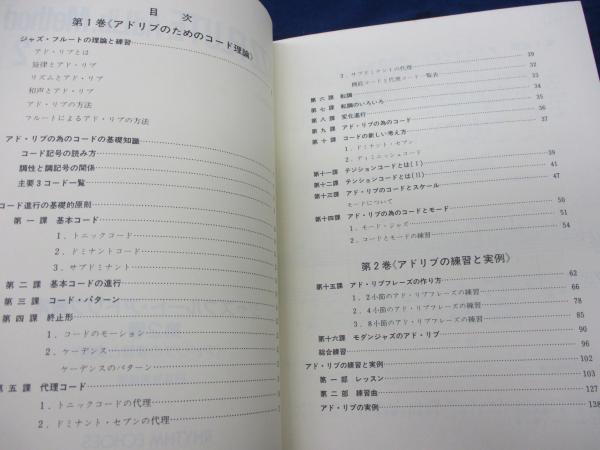 目 次
第1巻〈アドリブのためのコード理論〉
ジャズ・フルートの理論と練習
アド・リブとは
旋律とアド・リブ
リズムとアド・リブ
和声とアド・リブ
アド・リブの方法
フルートによるアド・リブの方法
アド・リブの為のコードの基礎知識
コード記号の読み方
調性と調記号の関係
主要3コード一覧
コード進行の基礎的原則
第一課 基本コード
1．トニックコード
2．ドミナントコード
3．サブドミナント
第二課 基本コードの進行
第三課 コード・パターン
第四課 終止形
1．コードのモーション
2．ケーデンス
ケーデンスのパターン
第五課 代理コード
1．トニックコードの代理
2．ドミナント・セブンの代理
3．サブドミナントの代理 30
機能コードと代理コード一覧表 32
第六課 転調 33
第七課 転調のいろいろ 34
第八課 変化進行 35
第九課 アド・リブの為のコード 36
第十課 コードの新しい考え方 37
1．ドミナント・セブン
2．ディミニッシュコード
第十一課 テンションコードとは(I) 39
第十二課 テンションコードとは(II) 41
第十三課 アド・リブのコードとスケール 47
モードについて
第十四課 アド・リブの為のコードとモード 50
1．モード・ジャズ 51
2．コードとモードの練習 54
第2巻〈アドリブの練習と実例〉
第十五課 アド・リブフレーズの作り方 62
1．2小節のアド・リブフレーズの練習 66
2．4小節のアド・リブフレーズの練習 78
3．8小節のアド・リブフレーズの練習 85
第十六課 モダンジャズのアド・リブ 90
総合練習 96
アド・リブの練習と実例 102
第一部 レッスン 103
第二部 練習曲 127
アド・リブの実例 138